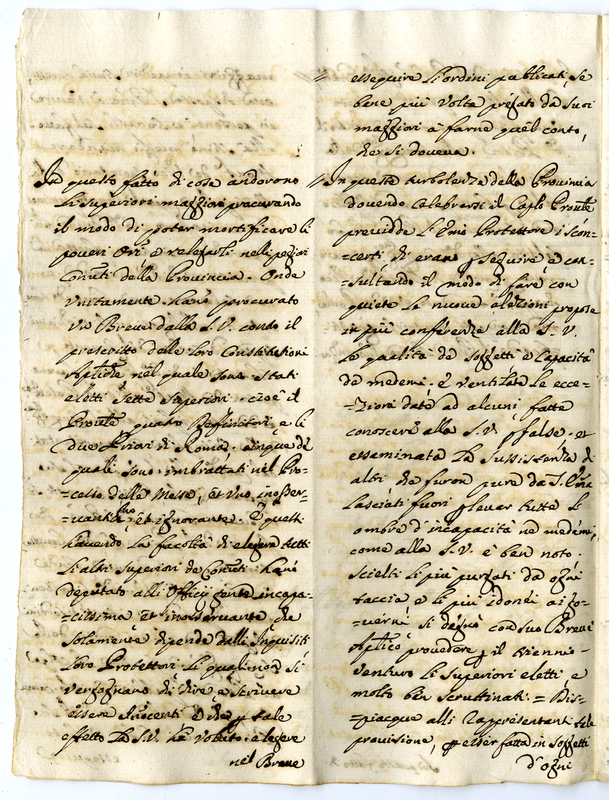 In questo fatto di cose andorono
li superiori maggiori procurando
il modo di poter mortificare li
poveri Ori, e relegarli nelli peggiori
Conuti della Provincia. Onde
unitamente hano procurato
un Breve dalla S. V. contro il
prescritto dalle loro Constitutioni
Aplice nel quale sono stati
eletti sette superiori, cioè il
Proule quatro Deffinitori, e li
due Priori di Roma, cinque de
quali sono imbrattati nel Pro=
=cesso delle Messe, et uno inosser=
=vante, et ignorante. E questi
havendo la facoltà di elegere tutti
li altri superiori de Conuti, hano
deputato alli Officij gente incapa=
=cissima et inosservante che
solamente dipende dalli Inquisiti
loro Protettori, li quali non si
vergognano di dire e scrivere
essere Inocenti e che p tale
effetto la S. V. ha voluto elegere
nel Breve
esseguire li ordini publicati, se
bene più volte pregato da suoi
maggiori à farne quel conto,
che si doveva.
In questa turbolenza della Provincia
dovendo celebrarsi il Caplo Proule
previdde l'Emo Protettore i scon=
=certi che erano p seguire e con=
=sultando il modo di fare con
quiete le nuove elezioni propose
in più conferenze alla S. V.
la qualità de soggetti e capacità
de medemi, e ventilate le ecce=
=zioni date ad alcuni, fatte
conoscere alla S. V. p false, et
essaminata la sussistenza di
altri che furon pure da S. Ema
lasciati fuori p levar tutte le
ombre d'incapacità ne medemi,
come alla S. V. è ben noto.
Scielti li più purgati da ogni
taccia e li più idonei ai go=
=verni si degnò con suo Breve
Aplico provedere p il trienni
venturo li superiori eletti, e
molto ben scruttinati. = Dis=
=piacque alli Rappresentanti tale
provisione, p esser fatta in soggetti
d'ogni